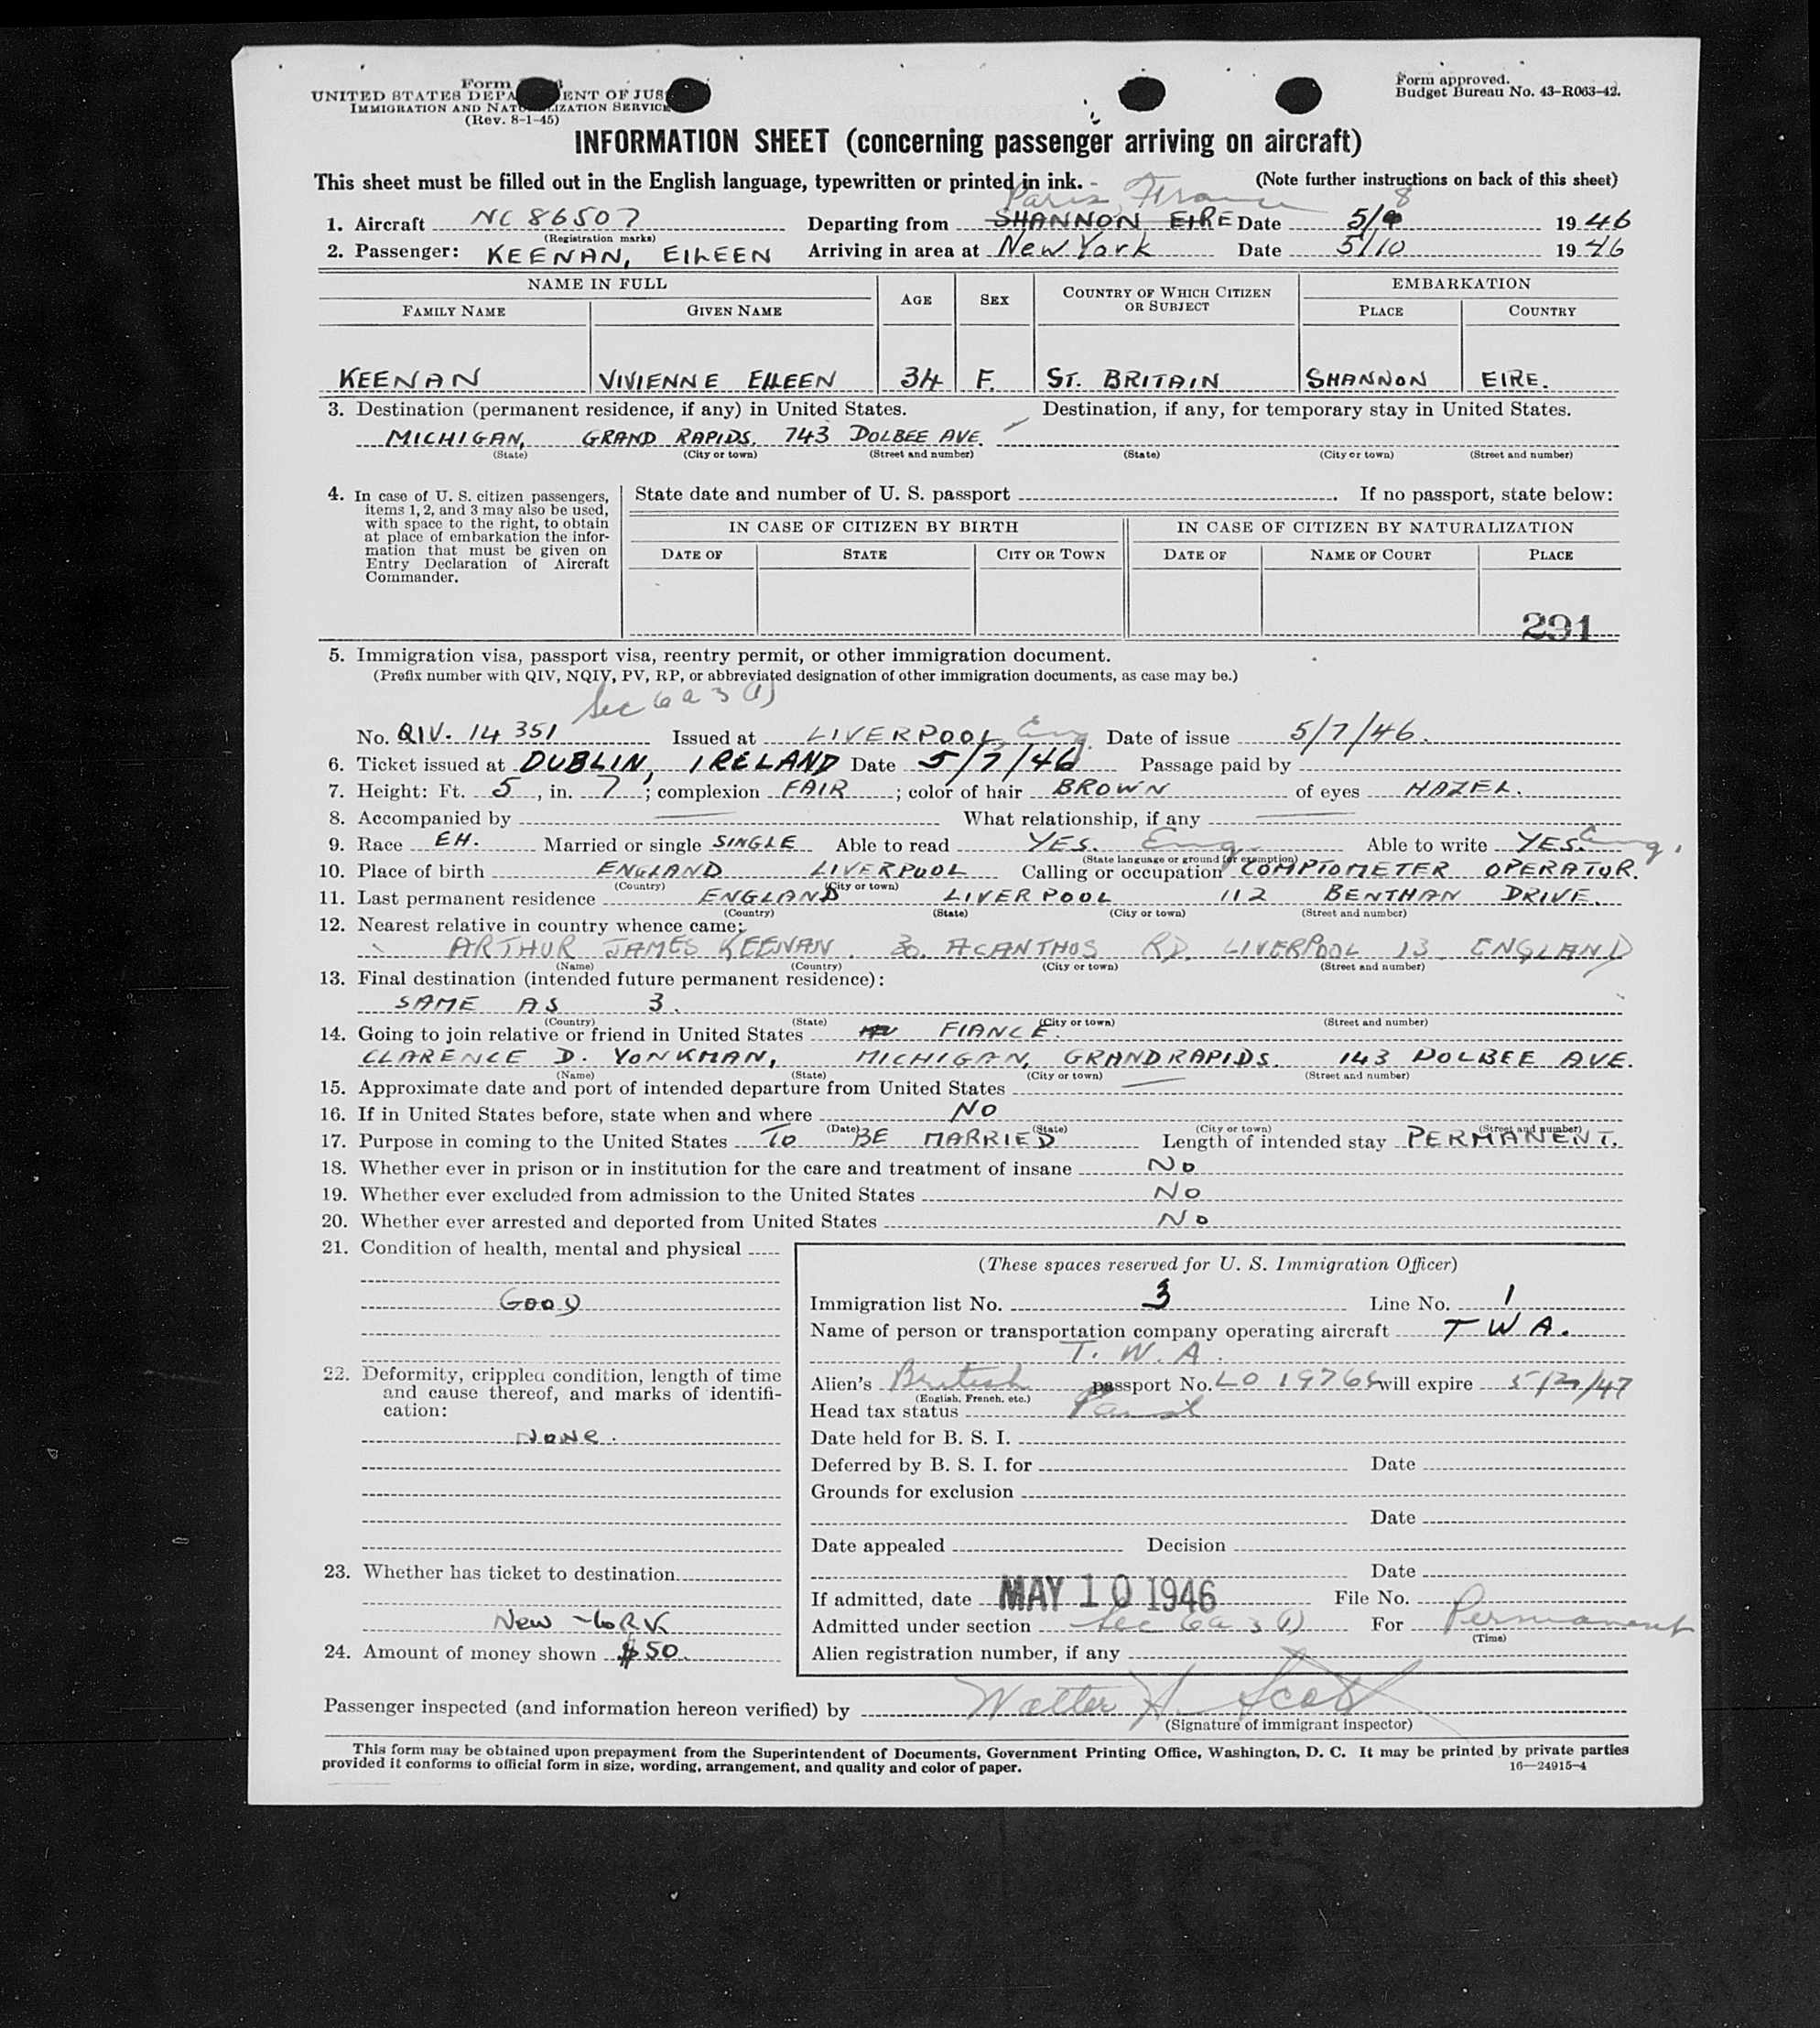 Form
UNITED STATES DEPA ENT OF JUS
IMMIGRATION AND NAT IZATION SERVICE
(Rev. 8-1-45)
Form approved.
Budget Bureau No. 43-R063-42.
INFORMATION SHEET (concerning passenger arriving on aircraft)
This sheet must be filled out in the English language, typewritten or printed in ink. - (Note further instructions on back of this sheet)
Paris, France 8
1. Aircraft NC 86507 Departing from SHANNON, EIRE Date 5/9 1946
(Registration marks)
2. Passenger: KEENAN, EILEEN Arriving in area at New York Date 5/10 1946
NAME IN FULL AGE SEX COUNTRY OF WHICH CITIZEN OR SUBJECT EMBARKATION
FAMILY NAME GIVEN NAME PLACE COUNTRY
KEENAN VIVIENNE EILEEN 34 F. ST. BRITAIN SHANNON EIRE.
3. Destination (permanent residence, if any) in United States. Destination, if any, for temporary stay in United States.
MICHIGAN, GRAND RAPIDS. 743 DOLBEE AVE.
(State) (City or town) (Street and number) (State) (City or town) (Street and number)
4. In case of U. S. citizen passengers, items 1, 2, and 3 may also be used, with space to the right, to obtain at place of embarkation the information that must be given on Entry Declaration of Aircraft Commander.
State date and number of U. S. passport . If no passport, state below:
IN CASE OF CITIZEN BY BIRTH IN CASE OF CITIZEN BY NATURALIZATION
DATE OF STATE CITY OR TOWN DATE OF NAME OF COURT PLACE
291
5. Immigration visa, passport visa, reentry permit, or other immigration document.
(Prefix number with QIV, NQIV, PV, RP, or abbreviated designation of other immigration documents, as case may be.)
Sec 6 a 3 (1)
No. QIV. 14351 Issued at LIVERPOOL, Eng. Date of issue 5/7/46.
6. Ticket issued at DUBLIN, IRELAND Date 5/7/46 Passage paid by
7. Height: Ft. 5, in. 7; complexion FAIR; color of hair BROWN of eyes HAZEL.
8. Accompanied by — What relationship, if any —
9. Race EH. Married or single SINGLE Able to read YES. Eng. Able to write YES. Eng.
(State language or ground for exemption)
10. Place of birth ENGLAND LIVERPOOL Calling or occupation COMPTOMETER OPERATOR.
(Country) (City or town)
11. Last permanent residence ENGLAND LIVERPOOL 112 BENTHAN DRIVE.
(Country) (State) (City or town) (Street and number)
12. Nearest relative in country whence came:
ARTHUR JAMES KEENAN. 30. ACANTHOS RD. LIVERPOOL 13. ENGLAND
(Name) (Country) (City or town) (Street and number)
13. Final destination (intended future permanent residence):
SAME AS 3.
(Country) (State) (City or town) (Street and number)
14. Going to join relative or friend in United States FIANCE.
CLARENCE D. YONKMAN, MICHIGAN, GRAND RAPIDS. 143 DOLBEE AVE.
(Name) (State) (City or town) (Street and number)
15. Approximate date and port of intended departure from United States —
16. If in United States before, state when and where NO
(Date) (State) (City or town) (Street and number)
17. Purpose in coming to the United States To BE MARRIED Length of intended stay PERMANENT.
18. Whether ever in prison or in institution for the care and treatment of insane No
19. Whether ever excluded from admission to the United States No
20. Whether ever arrested and deported from United States No
21. Condition of health, mental and physical
GOOD
22. Deformity, crippled condition, length of time and cause thereof, and marks of identification:
NONE.
23. Whether has ticket to destination
New YORK
24. Amount of money shown $50.
(These spaces reserved for U. S. Immigration Officer)
Immigration list No. 3 Line No. 1
Name of person or transportation company operating aircraft T W A.
T. W. A.
Alien's British passport No. LO 19766 will expire 5/2/47
(English, French, etc.)
Head tax status Paid
Date held for B. S. I.
Deferred by B. S. I. for Date
Grounds for exclusion
Date
Date appealed Decision
Date
If admitted, date MAY 10 1946 File No.
Admitted under section Sec 6a 3 (1) For Permanent
(Time)
Alien registration number, if any
Passenger inspected (and information hereon verified) by Walter H. Scott
(Signature of immigrant inspector)
This form may be obtained upon prepayment from the Superintendent of Documents, Government Printing Office, Washington, D. C. It may be printed by private parties
provided it conforms to official form in size, wording, arrangement, and quality and color of paper. 16—24915-4